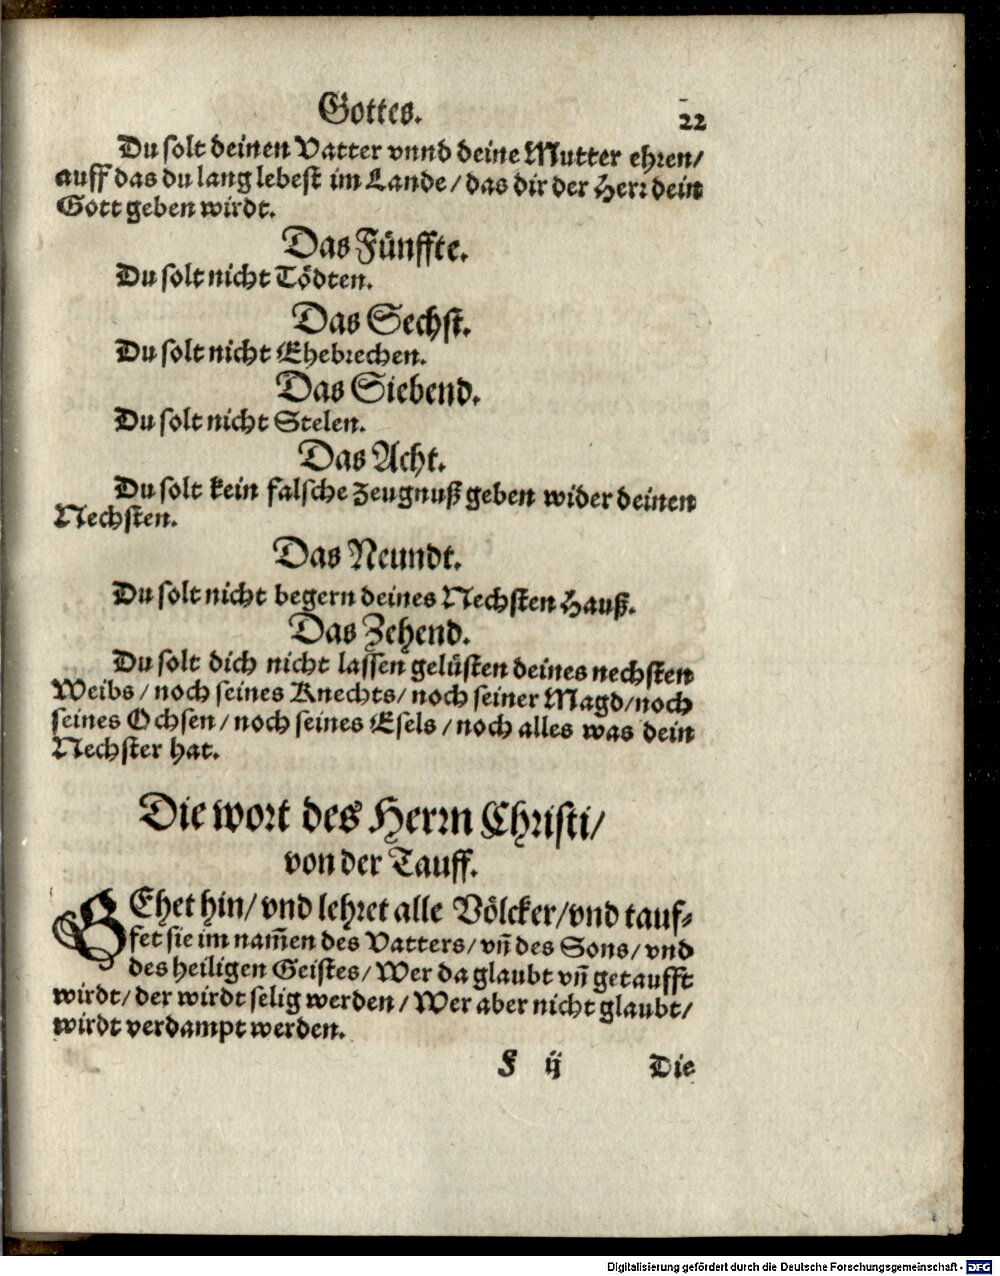 Gottes. 22
Du solt deinen Vatter vnnd deine Mutter ehren/
auff das du lang lebest im Lande/ das dir der Herr dein
Gott geben wirdt.
Das Fünffte.
Du solt nicht Tödten.
Das Sechst.
Du solt nicht Ehebrechen.
Das Siebend.
Du solt nicht Stelen.
Das Acht.
Du solt kein falsche Zeugnuß geben wider deinen
Nechsten.
Das Neundt.
Du solt nicht begern deines Nechsten Hauß.
Das Zehend.
Du solt dich nicht lassen gelüsten deines nechsten
Weibs/ noch seines Knechts/ noch seiner Magd/ noch
seines Ochsen/ noch seines Esels/ noch alles was dein
Nechster hat.
Die wort des Herrn Christi/
von der Tauff.
GEhet hin/ vnd lehret alle Völcker/ vnd tauf-
fet sie im nam̃en des Vatters/ vñ des Sons/ vnd
des heiligen Geistes/ Wer da glaubt vñ getaufft
wirdt/ der wirdt selig werden/ Wer aber nicht glaubt/
wirdt verdampt werden.
F ij Die
Digitalisierung gefördert durch die Deutsche Forschungsgemeinschaft - DFG